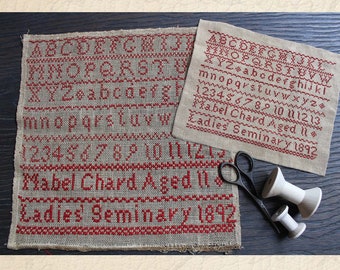 ABCDEFGHIJKL
MNOPQRSTUVW
XYZabcdefghijkl
mnopqrstuvwxyz
12345678910 11 12 13
Mabel Chard Aged 11
Ladies' Seminary 1892
ABCDEFGHIJKL
MNOPQRSTUVW
XYZabcdefghijkl
mnopqrstuvwxyz
12345678910 11 12 13
Mabel Chard Aged 11
Ladies' Seminary 1892